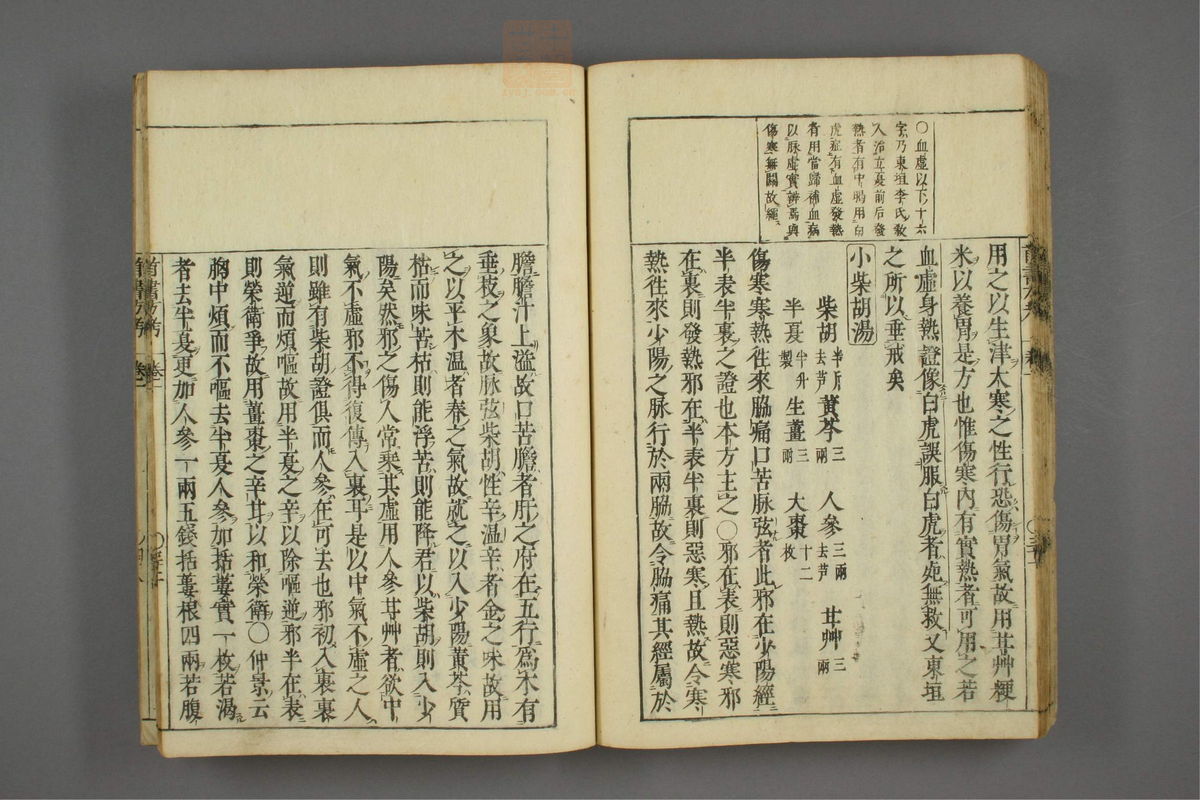 ○血虛以下十六
字乃東垣李氏敎
人治立夏前后發
熱者有中暍用白
虎症有血虛發熱
有用當歸補血病
以脉虛實辨焉與
傷寒無關故繩
用之以生津大寒之性行恐傷胃氣故用甘艸粳
米以養胃是方也惟傷寒內有實熱者可用之若
血虛身熱證像白虎誤服白虎者死無救又東垣
之所以垂戒矣
小柴胡湯
柴胡半斤去芦 黃芩三兩 人參三兩去芦 甘艸三兩
半夏半升製 生薑三兩 大棗十二枚
傷寒寒熱往來脇痛口苦脉弦者此邪在少陽經
半表半裏之證也本方主之○邪在表則惡寒邪
在裏則發熱邪在半表半裏則惡寒且熱故令寒
熱往來少陽之脉行於兩脇故令脇痛其經屬於
膽膽汁上溢故口苦膽者肝之府在五行爲木有
垂枝之象故脉弦柴胡性辛溫辛者金之味故用
之以平木溫者春之氣故就之以入少陽黃芩質
枯而味苦枯則能浮苦則能降君以柴胡則入少
陽矣然邪之傷人常乘其虛用人參甘艸者欲中
氣不虛邪不得復傳入裏耳是以中氣不虛之人
則雖有柴胡證俱而人參在可去也邪初入裏裏
氣逆而煩嘔故用半夏之辛以除嘔逆邪半在表
則榮衛爭故用薑棗之辛甘以和榮衛○仲景云
胸中煩而不嘔去半夏人參加括蔞實一枚若渴
者去半夏更加人參一兩五錢括蔞根四兩若腹